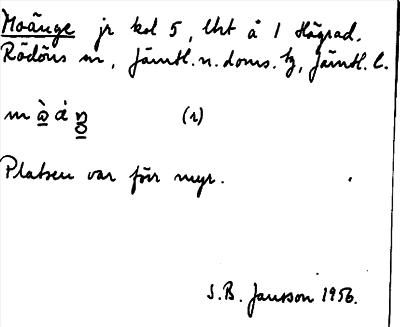 Moänge jr kol 5, lht å 1 Högrad.
Rödöns sn, Jämtl. n. doms. tg, Jämtl. l.
(1)
Platsen var förr myr.
S.B. Jansson 1956.